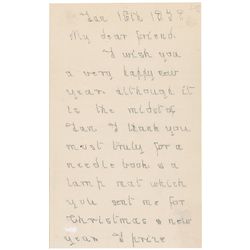 Jan 18th 18
My dear friend.
I wish you
a very happy new
year although it
is the midst of
Jan I thank you
most truly for a
needle book & a
lamp mat which
you sent me for
Christmas & new
year I prize